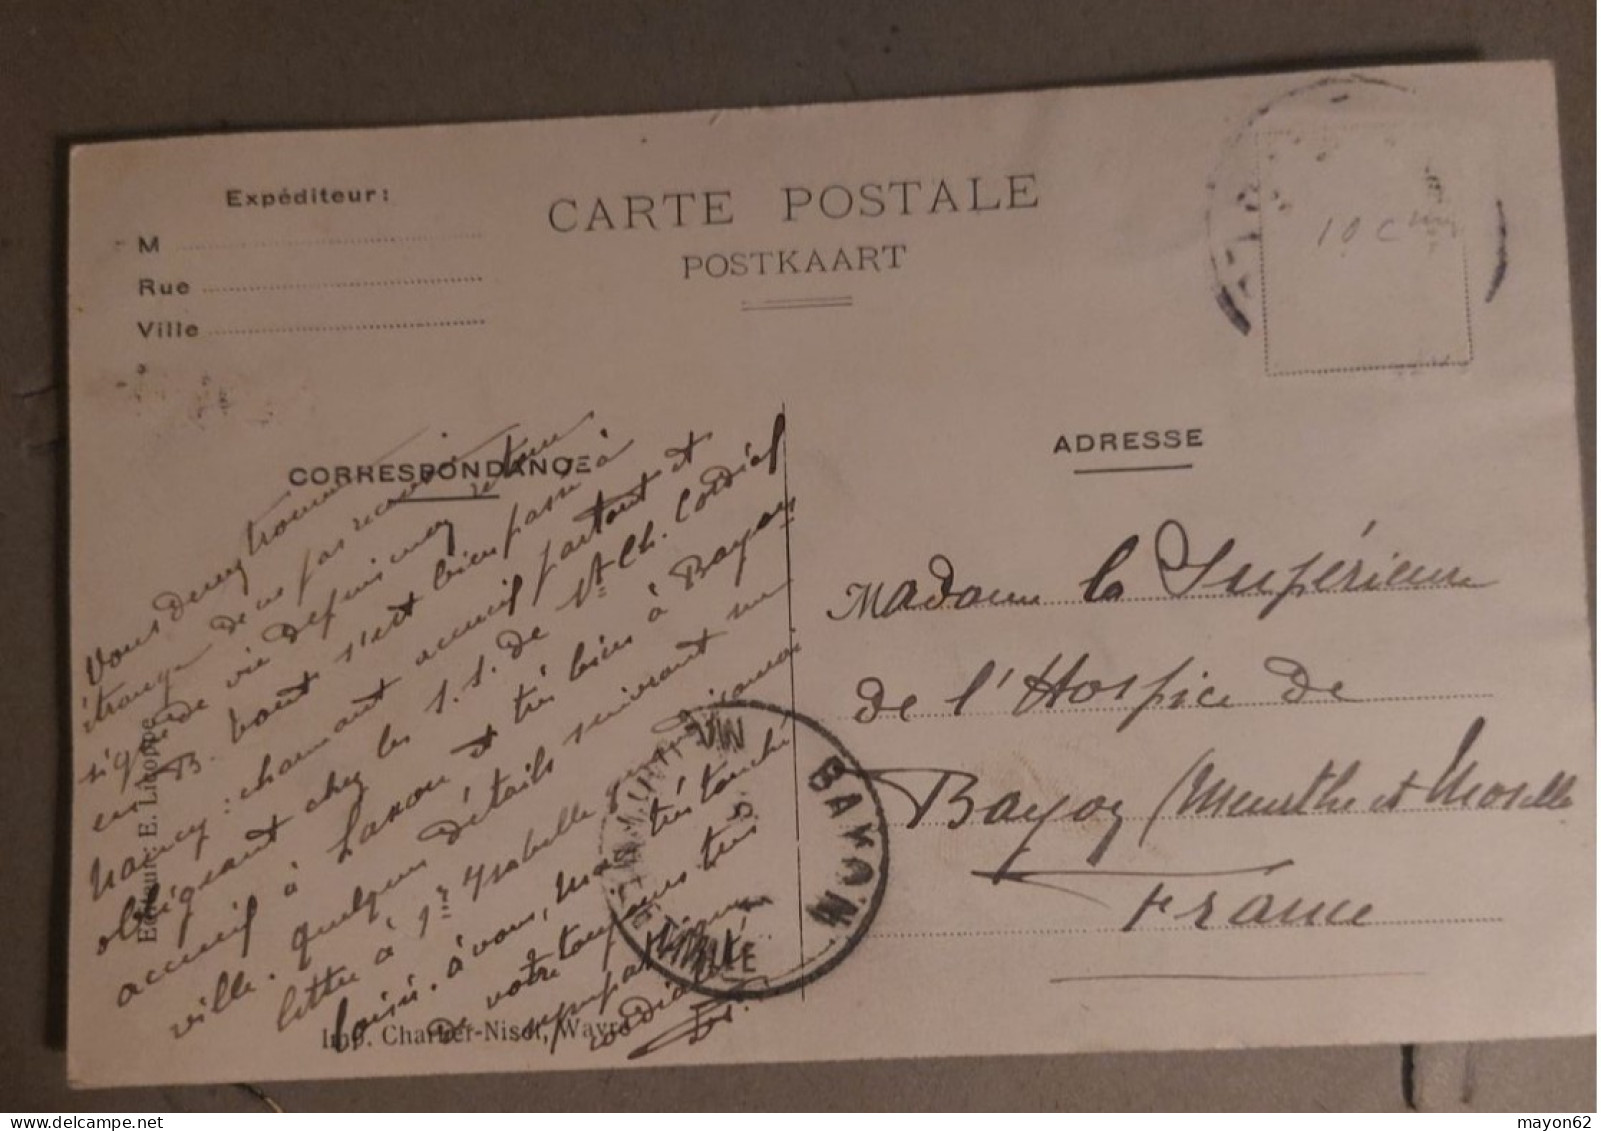 Expéditeur:
M
Rue
Ville
CARTE POSTALE
POSTKAART
10 c
CORRESPONDANCE
ADRESSE
Vous devez trouver
étrange de ne pas recevoir
signe de vie depuis mon retour
en B. tout s'est bien passé à
Nancy: charmant accueil partout et
obligeant chez les S. S. de St Ch. Cordial
accueil à Laxou et très bien à Bayon
ville. quelques détails suivant une
lettre à Isabelle
loisir. à vous, très touché
de votre toujours
sympathique
cordial
Madame la Supérieure
de l'Hospice de
Bayon (Meurthe et Moselle
France
BAYON
Editeur: E. Linoppe
Imp. Charlier-Nisol, Wavre
mayon62